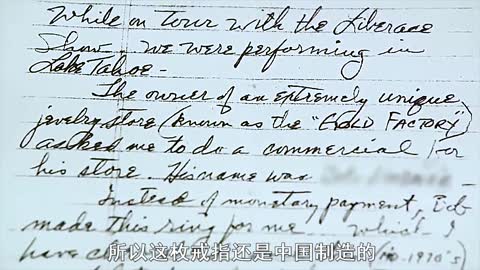 While on tour with the Liberace
Show. We were performing in
Lake Tahoe-
The owner of an extremely unique
jewelry store (known as the "GOLD FACTORY")
asked me to do a commercial for
his store. His name was
Instead of monetary payment, Bob
made this ring for me
have
1970's
所以这枚戒指还是中国制造的